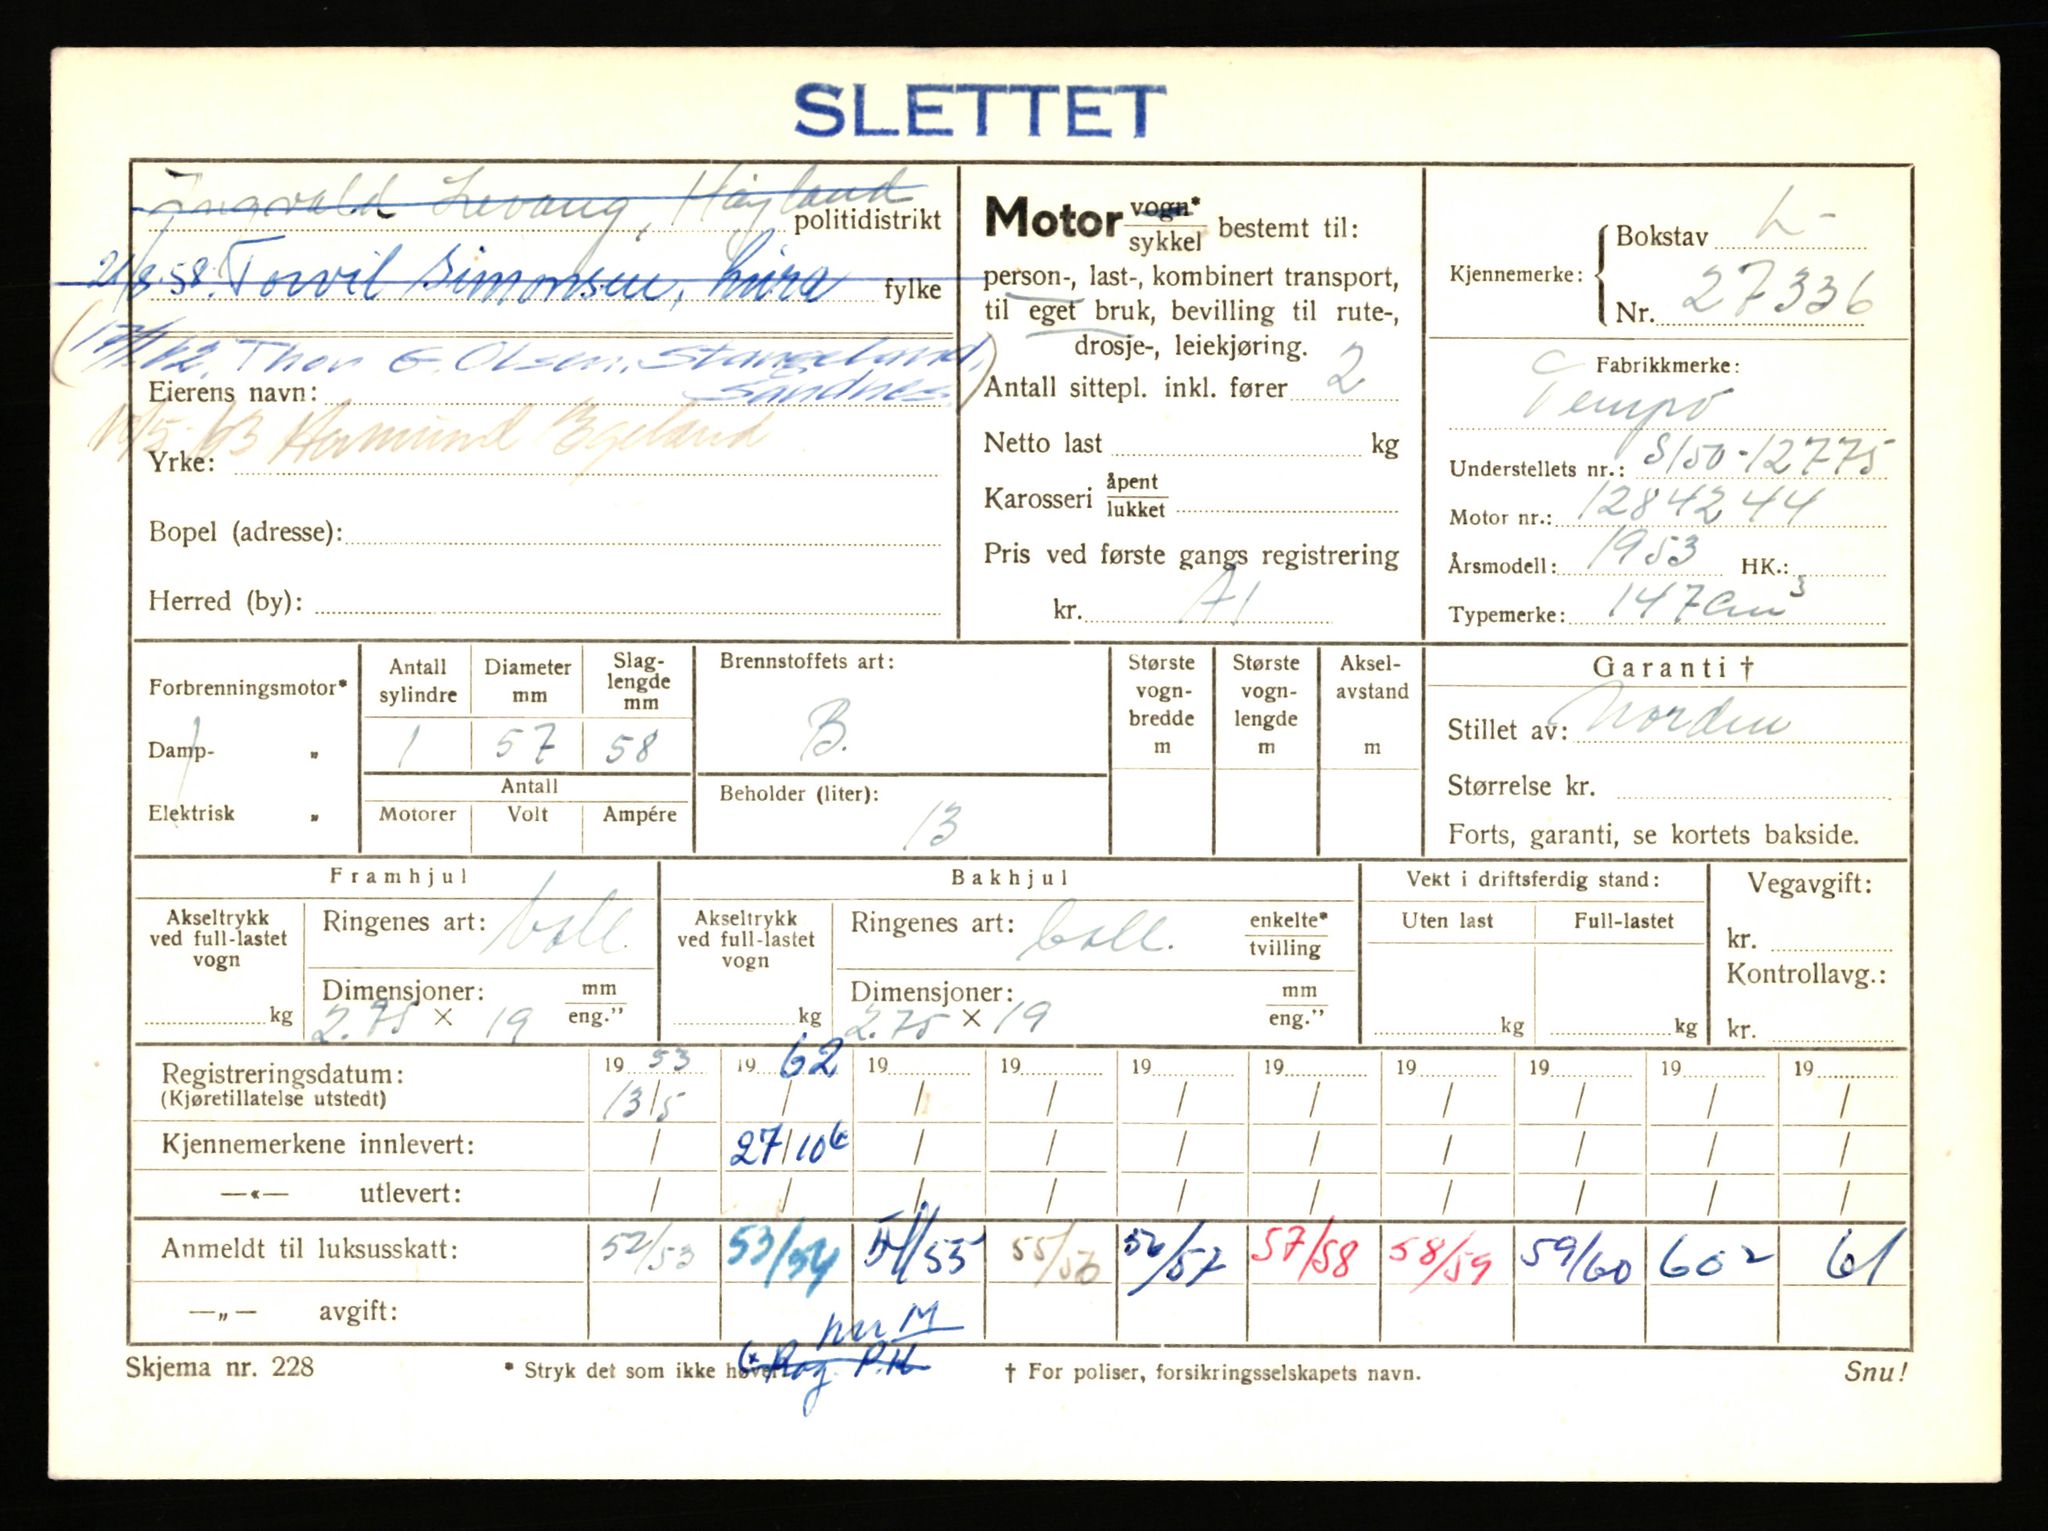 SLETTET
Ingvald Levang, Høyland
politidistrikt
21/8.58. Torvil Simonsen, Lura
fylke
12. Thor G. Olsen, Stangeland,
Sandnes
Eierens navn:
10/5-63 Aamund Bgeland
Yrke:
Bopel (adresse):
Herred (by):
Motor vogn*
sykkel bestemt til:
person-, last-, kombinert transport,
til eget bruk, bevilling til rute-,
drosje-, leiekjøring.
Antall sittepl. inkl. fører 2
Netto last kg
Karosseri åpent
lukket
Pris ved første gangs registrering
kr. A1
Kjennemerke: Bokstav L-
Nr. 27336
Fabrikkmerke:
Tempo
Understellets nr.: S150-12775
Motor nr.: 1284244
Årsmodell: 1953 HK.:
Typemerke: 147 cm³
Forbrenningsmotor*
Damp- „
Elektrisk „
Antall sylindre 1
Diameter mm 57
Slag-lengde mm 58
Antall
Motorer Volt Ampére
Brennstoffets art:
B.
Beholder (liter):
13
Største vogn-bredde m
Største vogn-lengde m
Aksel-avstand m
Garanti †
Stillet av: Norden
Størrelse kr.
Forts, garanti, se kortets bakside.
Framhjul
Akseltrykk ved full-lastet vogn
kg
Ringenes art: ball.
Dimensjoner: mm
2.75 × 19 eng."
Bakhjul
Akseltrykk ved full-lastet vogn
kg
Ringenes art: ball. enkelte*
tvilling
Dimensjoner: mm
2.75 × 19 eng."
Vekt i driftsferdig stand:
Uten last Full-lastet
kg kg
Vegavgift:
kr.
Kontrollavg.:
kr.
Registreringsdatum: 19 53 19 62 19 19 19 19 19 19 19 19
(Kjøretillatelse utstedt) 13/5 / / / / / / / / /
Kjennemerkene innlevert: / 27/10 / / / / / / / /
—«— utlevert: / / / / / / / / / /
Anmeldt til luksusskatt: 52/53 53/54 54/55 55/56 56/57 57/58 58/59 59/60 60² 61
—„— avgift:
Skjema nr. 228
* Stryk det som ikke høver.
Rog. P.K.
† For poliser, forsikringsselskapets navn.
Snu!